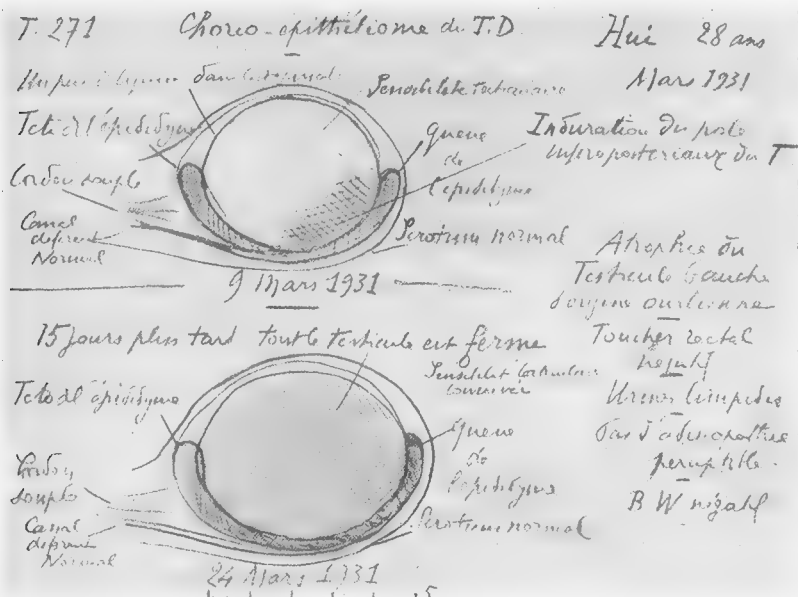 T. 271
Choreo-épithéliome du T.D
Hui 28 ans
Mars 1931
Sensibilité testiculaire
Tete de l'épididyme
Queue
de
l'epididyme
Induration du pole
infero posterieur du T
Cordon souple
Canal
deferent
Normal
Scrotum normal
9 Mars 1931
Atrophie du
Testicule Gauche
d'origine ourlienne
Toucher rectal
négatif
Urines limpides
Pas d'adenopathie
perceptible.
B W négatif
15 jours plus tard tout le testicule est ferme
Sensibilité testiculaire
conservée
Tete de l'épididyme
Queue
de
l'epididyme
Cordon
souple
Canal
deferent
Normal
Scrotum normal
24 Mars 1931